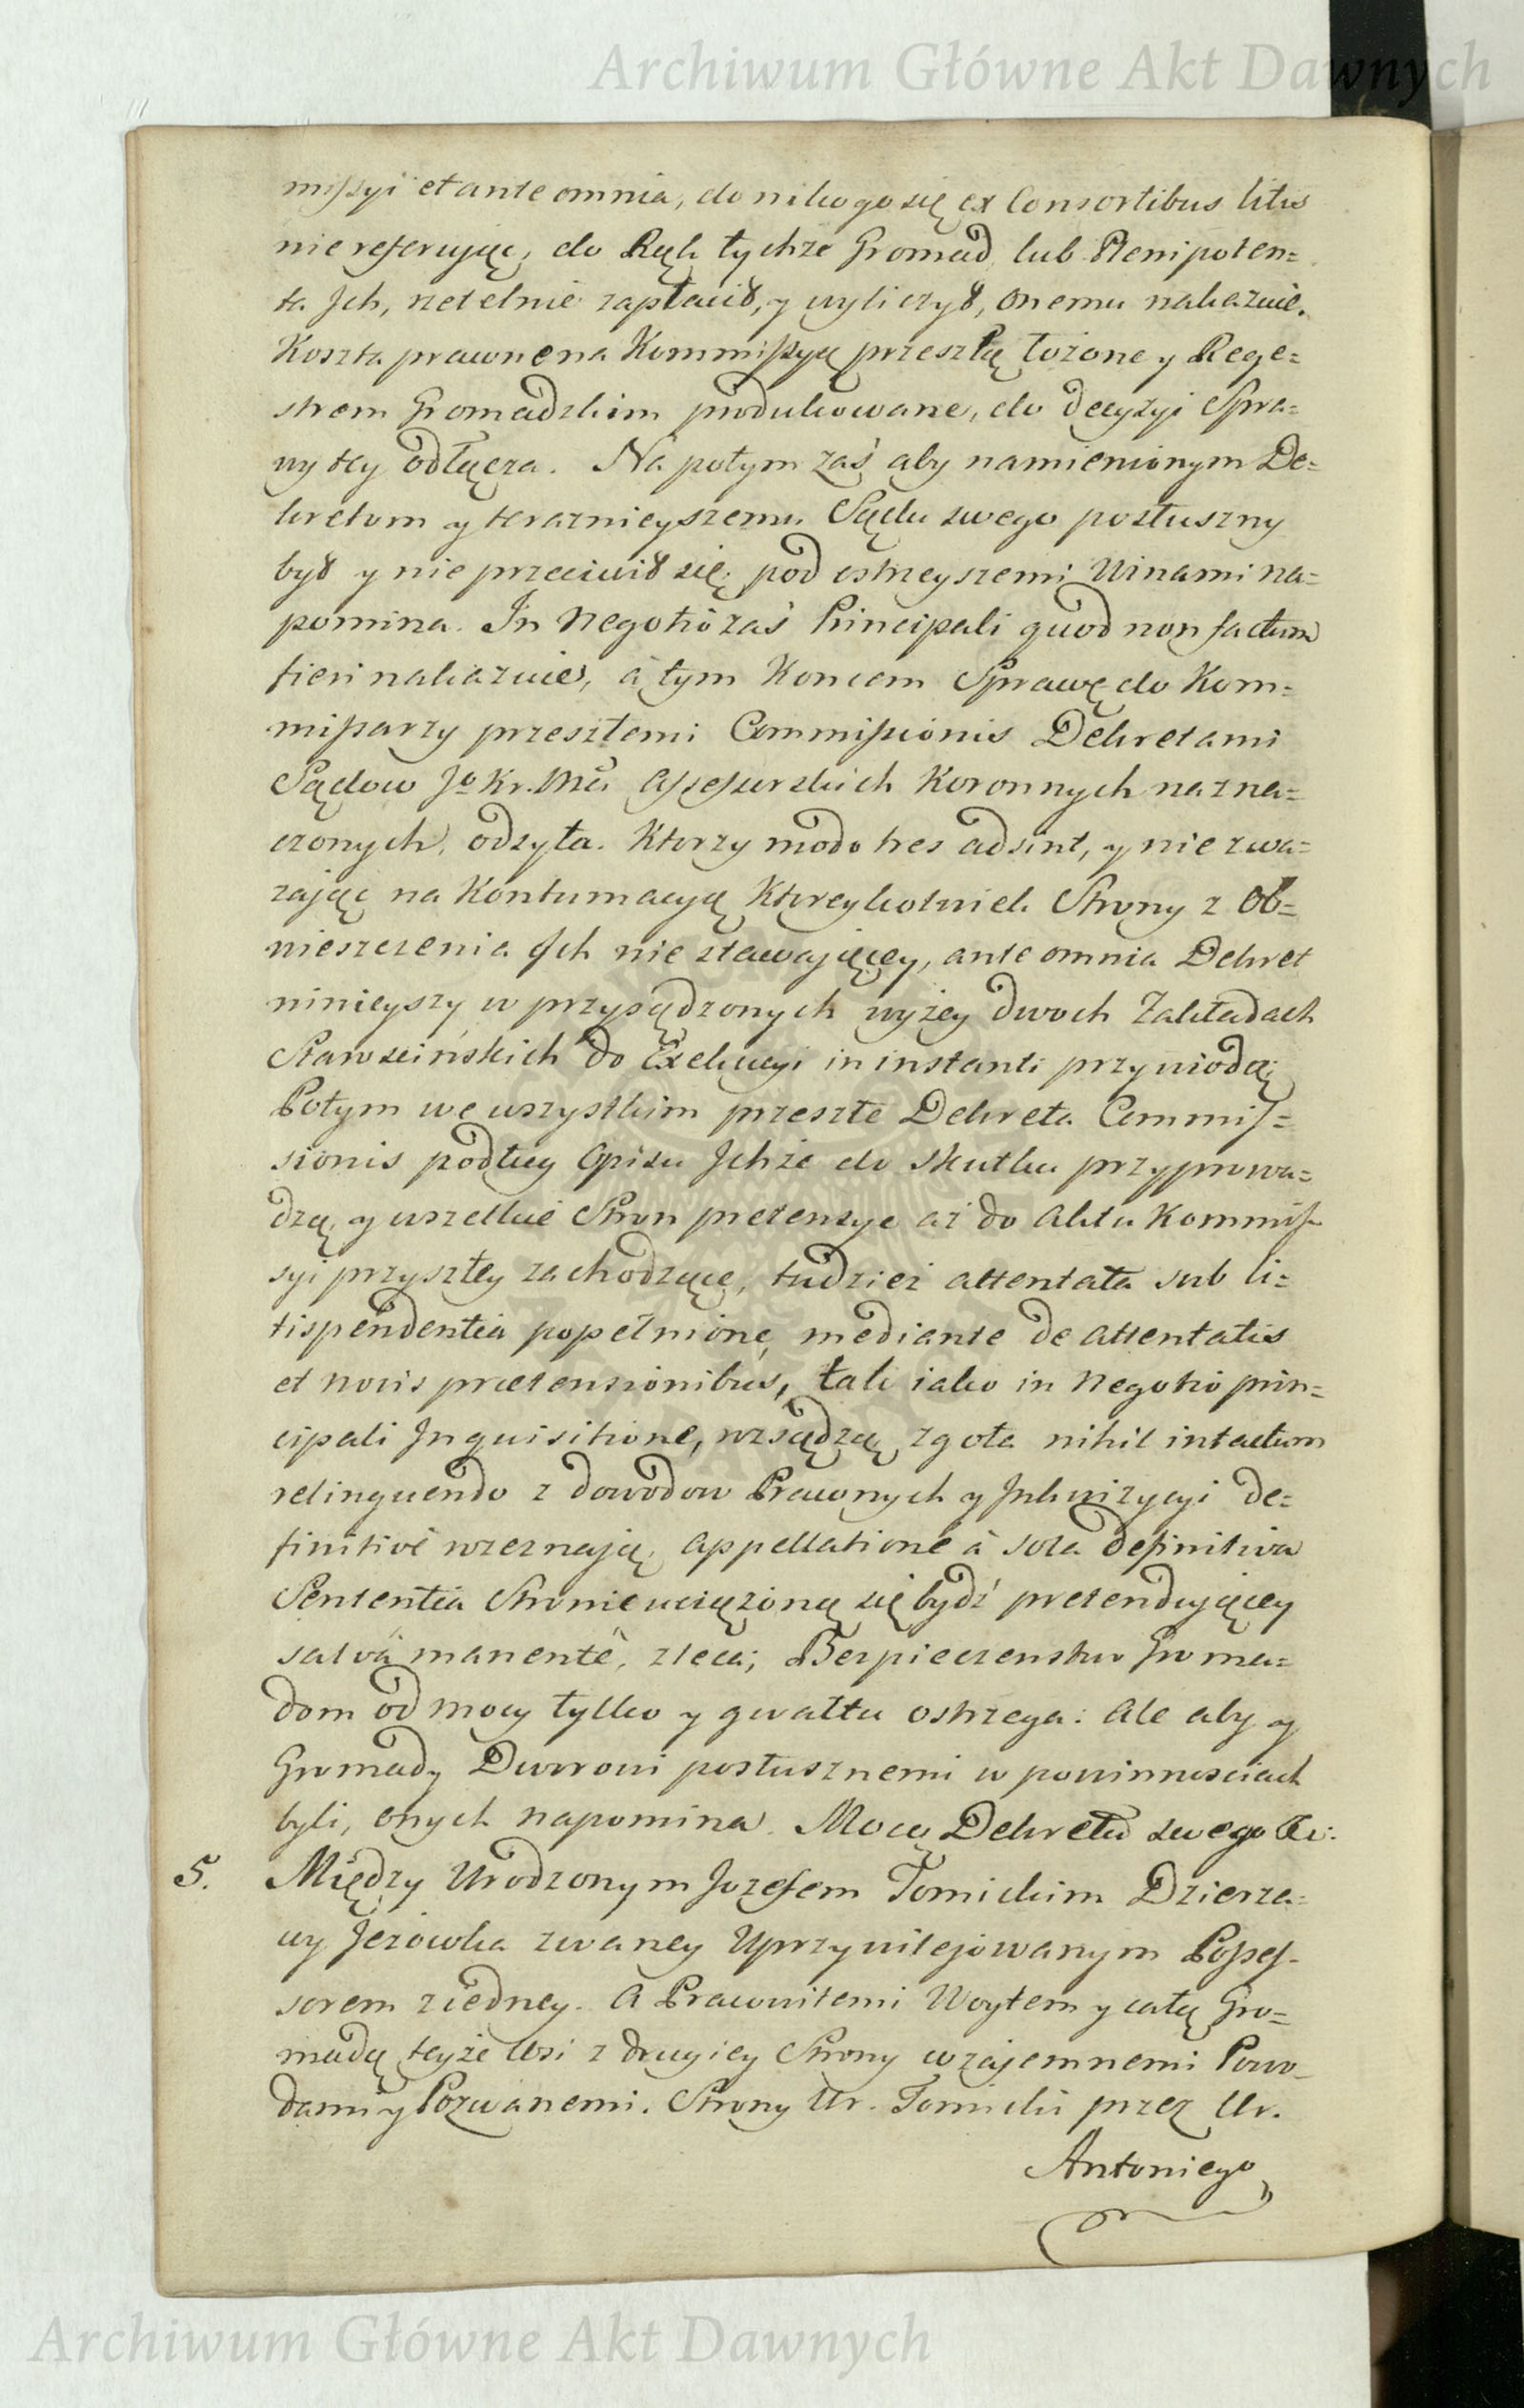 Archiwum Główne Akt Dawnych
missyi et ante omnia, do nikogo się ex Consortibus litis
nie referując, do Rąk tychże Gromad lub Plenipoten=
ta Jch, rzetelnie zapłacił, y wyliczył, onemu nakazuie.
Koszta prawne na Kommissyą przeszłą łożone y Rege=
strem Gromadzkim produkowane, do decyzyi Spra=
wy tey odłącza. Na potym zaś aby namienionym De=
kretom y teraznieyszemu Sądu swego posłuszny
był y nie przeciwił się, pod ostrzeyszemi Winami na=
pomina. In Negotio zaś Principali quod non factum
fieri nakazuie, á tym Koncem Sprawę do Kom=
missarzy przeszłemi Commissionis Dekretami
Sądow Jo Kr. Mći Assessorskich Koronnych nazna=
czonych, odsyła. Ktorzy modo tres adsint, y nie zwa=
żaiąc na Kontumacyą Ktoreykolwiek Strony z Ob=
wieszczenia Jch nie stawaiącey, ante omnia Dekret
ninieyszy w przysądzonych wyżey dwoch Zakładach
Starościńskich do Exekucyi in instanti przywiodą;
Potym we wszystkim przeszłe Dekreta Commis=
sionis podług Opisu Jchże do skutku przyprowa=
dzą, y wszelkie Stron pretensye aż do Aktu Kommis
syi przyszłey zachodzące, tudzież attentata sub li=
tispendentia popełnione, mediante de attentatis
et novis praetensionibus, tak iako in Negotio prin=
cipali Inquisitione, rozsądzą, zgoła nihil intactum
relinquendo z dowodow Prawnych y Jnkwizycyi de=
finitivè rozeznaią, appellatione à sola definitiva
Sententia Stronie uciążoną się bydź pretenduiącey
salvâ manente, zleca; Bezpieczenstwo Groma=
dom od mocy tylko y gwałtu ostrzega: Ale aby y
Gromady Dworowi posłusznemi w powinnosciach
byli, onych napomina. Mocą Dekretu swego &c:
5. Między Urodzonym Jozefem Tomickim Dzierza=
wy Jezowka zwaney Uprzywilejowanym Posses-
sorem z iedney. A Pracowitemi Woytem y całą Gro=
madą teyże Wsi z drugiey Strony wzajemnemi Powo-
dami y Pozwanemi. Strony Ur. Tomicki przez Ur.
Antoniego
Archiwum Główne Akt Dawnych